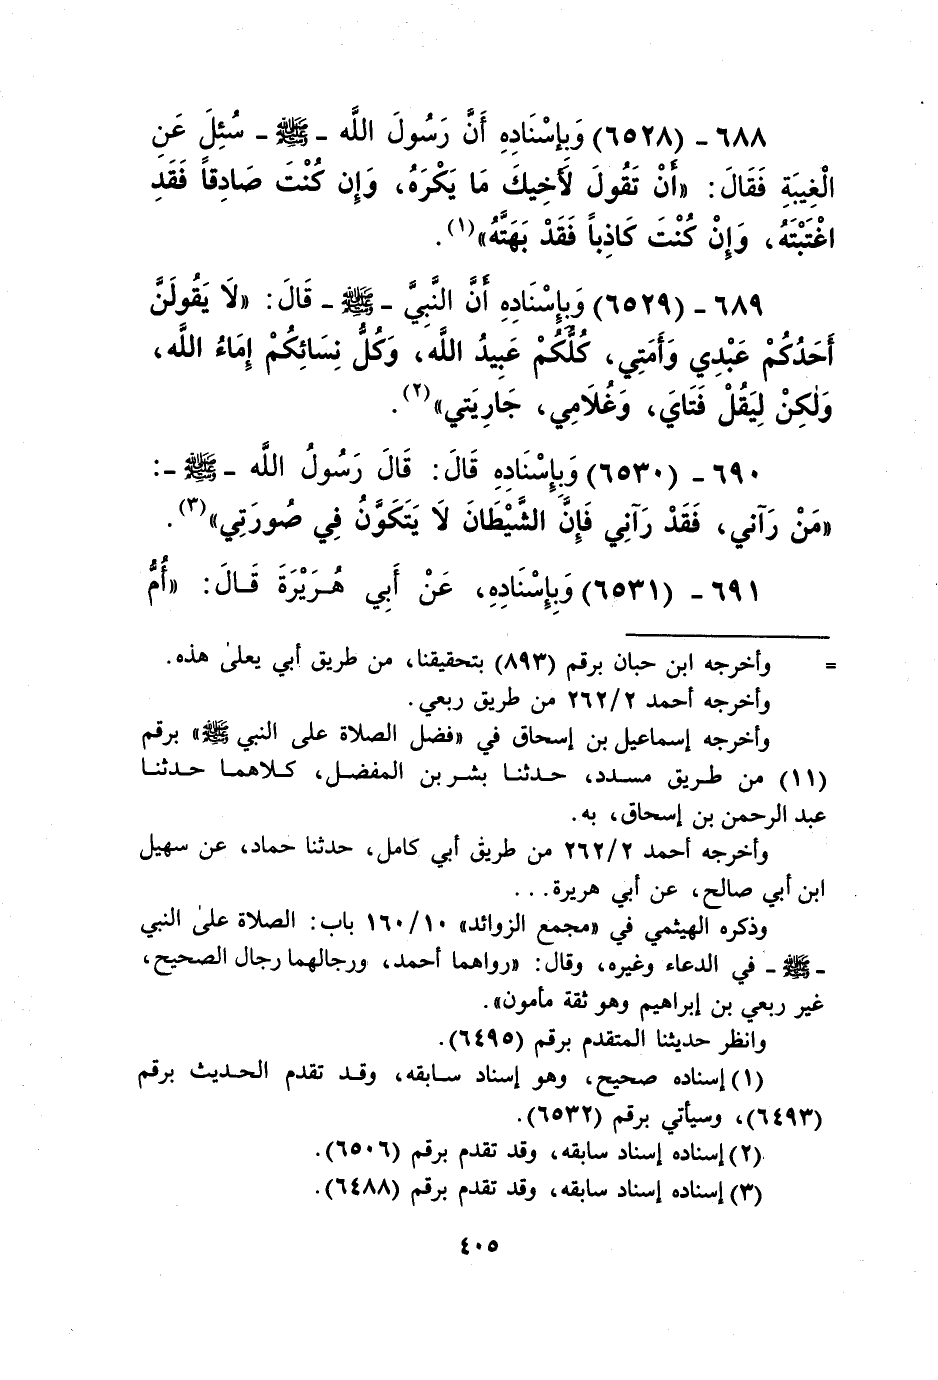 ٦٨٨ - (٦٥٢٨) وَبِإِسْنَادِهِ أَنَّ رَسُولَ اللَّه - ﷺ - سُئِلَ عَنِ
الْغِيبَةِ فَقَالَ: «أَنْ تَقُولَ لَأَخِيكَ مَا يَكْرَهُ، وَإِن كُنْتَ صَادِقاً فَقَدِ
اغْتَبْتَهُ، وَإِنْ كُنْتَ كَاذِباً فَقَدْ بَهَتَّهُ»(١).
٦٨٩ - (٦٥٢٩) وَبِإِسْنَادِهِ أَنَّ النَّبِيَّ - ﷺ - قَالَ: «لَا يَقُولَنَّ
أَحَدُكُمْ عَبْدِي وَأَمَتِي، كُلُّكُمْ عَبِيدُ اللَّه، وَكُلُّ نِسَائِكُمْ إِمَاءُ اللَّه،
وَلٰكِنْ لِيَقُلْ فَتَايَ، وَغُلَامِي، جَارِيَتي»(٢).
٦٩٠ - (٦٥٣٠) وَبِإِسْنَادِهِ قَالَ: قَالَ رَسُولُ اللَّه - ﷺ -:
«مَنْ رَآني، فَقَدْ رَآنِي فَإِنَّ الشَّيْطَانَ لَا يَتَكَوَّنُ فِي صُورَتِي»(٣).
٦٩١ - (٦٥٣١) وَبِإِسْنَادِهِ، عَنْ أَبِي هُرَيْرَةَ قَالَ: «أُمُّ
= وأخرجه ابن حبان برقم (٨٩٣) بتحقيقنا، من طريق أبي يعلىٰ هذه.
وأخرجه أحمد ٢٦٢/٢ من طريق ربعي.
وأخرجه إسماعيل بن إسحاق في «فضل الصلاة على النبي ﷺ» برقم
(١١) من طريق مسدد، حدثنا بشر بن المفضل، كلاهما حدثنا
عبد الرحمن بن إسحاق، به.
وأخرجه أحمد ٢٦٢/٢ من طريق أبي كامل، حدثنا حماد، عن سهيل
ابن أبي صالح، عن أبي هريرة...
وذكره الهيثمي في «مجمع الزوائد» ١٦٠/١٠ باب: الصلاة علىٰ النبي
- ﷺ - في الدعاء وغيره، وقال: «رواهما أحمد، ورجالهما رجال الصحيح،
غير ربعي بن إبراهيم وهو ثقة مأمون».
وانظر حديثنا المتقدم برقم (٦٤٩٥).
(١) إسناده صحيح، وهو إسناد سابقه، وقد تقدم الحديث برقم
(٦٤٩٣)، وسيأتي برقم (٦٥٣٢).
(٢) إسناده إسناد سابقه، وقد تقدم برقم (٦٥٠٦).
(٣) إسناده إسناد سابقه، وقد تقدم برقم (٦٤٨٨).
٤٠٥